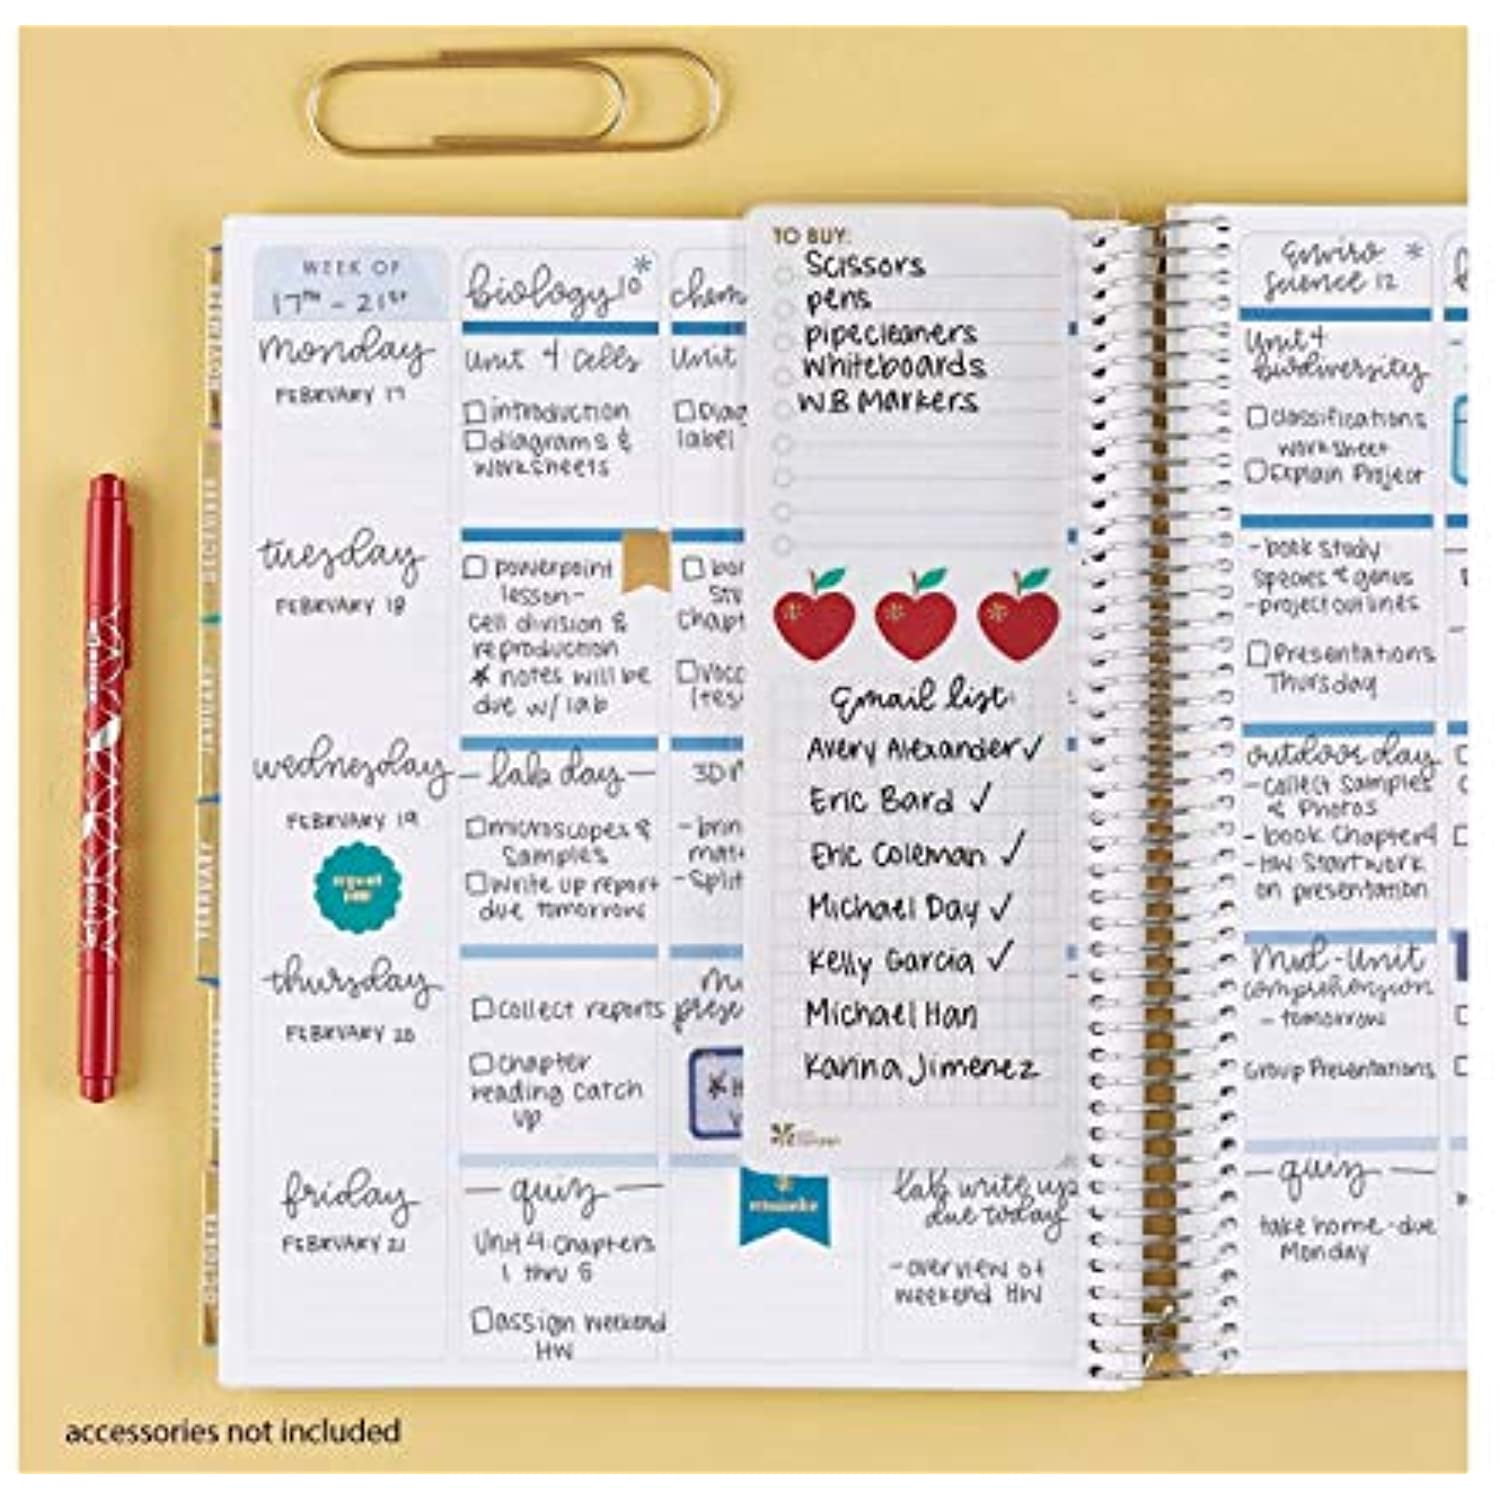 WEEK OF
17TH - 21ST
biology 10 *
chem
monday
FEBRUARY 17
unit 4 cells
□ introduction
□ diagrams &
worksheets
unit
□ Diag
label
tuesday
FEBRUARY 18
□ powerpoint
lesson-
cell division &
reproduction
* notes will be
due w/ lab
Chapt
wednesday
FEBRUARY 19
- lab day -
□ microscopes &
samples
□ write up report
due tomorrow
- brin
- Split
thursday
FEBRUARY 20
□ collect reports
□ Chapter
reading catch
up
prese
friday
FEBRUARY 21
- quiz -
Unit 4 Chapters
1 thru 6
□ assign weekend
HW
lab write ups
due today
- overview of
weekend HW
TO BUY:
Scissors
pens
pipecleaners
whiteboards
W.B Markers
Email list
Avery Alexander ✓
Eric Bard ✓
Eric Coleman ✓
Michael Day ✓
Kelly Garcia ✓
Michael Han
Karina Jimenez
Enviro *
Science 12
Unit 4
biodiversity
□ classifications
worksheet
□ Explain Project
- book study
species & genus
- project outlines
□ Presentations
Thursday
outdoor day
- collect samples
& Photos
- book Chapter 4
- HW Start work
on presentation
Mid-Unit
comprehension
- tomorrow
Group Presentations
- quiz -
take home - due
Monday
NOVEMBER
DECEMBER
JANUARY
FEBRUARY
accessories not included